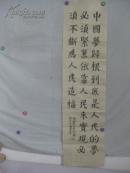 中國夢歸根到底是人民的夢
必須緊緊依靠人民來實現必
須不斷為人民造福